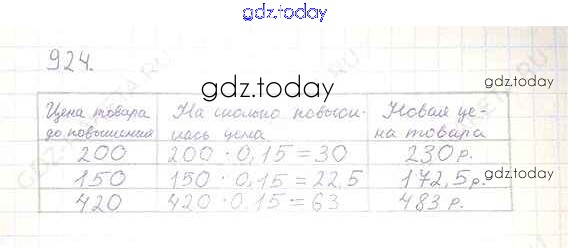 gdz.today
924.
gdz.today
Цена товара до повышения | На сколько повысилась цена | Новая цена товара
200 | 200 · 0,15 = 30 | 230 р.
150 | 150 · 0,15 = 22,5 | 172,5 р.
gdz.today
420 | 420 · 0,15 = 63 | 483 р.
gdz.today